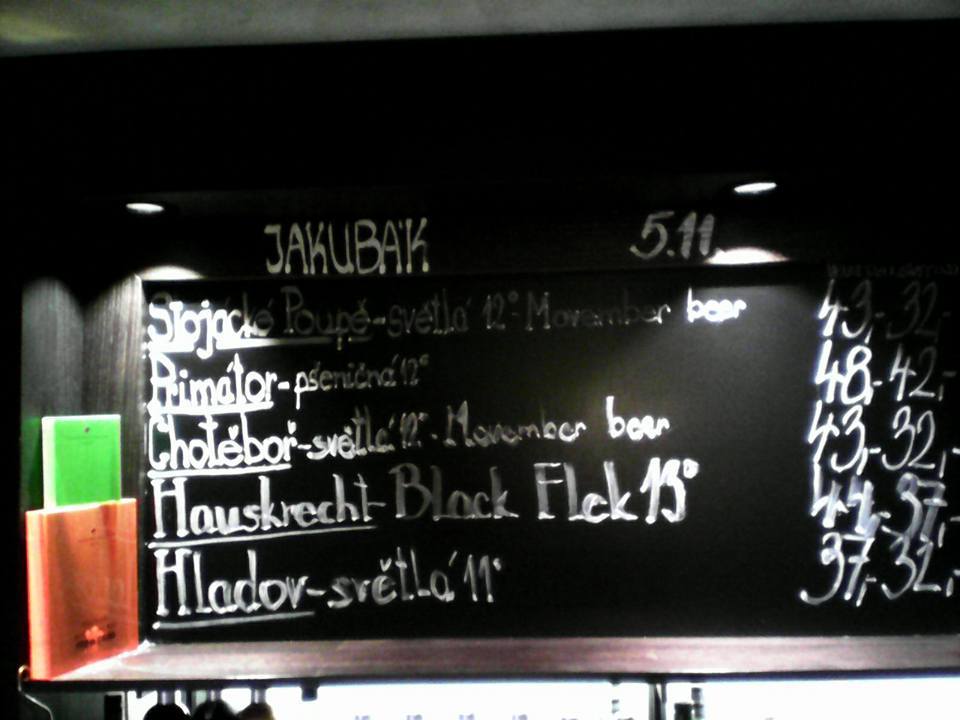 JAKUBÁK 5.11.
Stojacké Poupě - světlá 12° Movember beer 43,- 32,-
Primátor - pšeničná 12° 48,- 42,-
Chotěboř - světlá 12° - Movember beer 43,- 32,-
Hauskrecht - Black Flek 13° 44,- 37,-
Hladov - světlá 11° 37,- 32,-